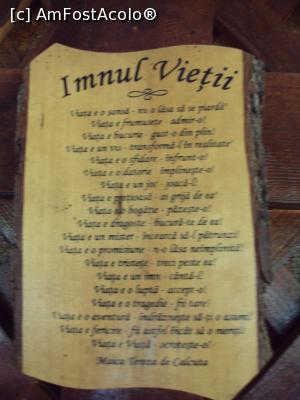 [c] AmFostAcolo®
Imnul Vieții
Viața e o șansă - nu o lăsa să se piardă!
Viața e frumusețe - admir-o!
Viața e bucurie - gust-o din plin!
Viața e un vis - transformă-l în realitate!
Viața e o sfidare - înfrunt-o!
Viața e o datorie - împlinește-o!
Viața e un joc - joacă-l!
Viața e prețioasă - ai grijă de ea!
Viața e o bogăție - păzește-o!
Viața e dragoste - bucură-te de ea!
Viața e un mister - încearcă să-l pătrunzi!
Viața e o promisiune - n-o lăsa neîmplinită!
Viața e tristețe - treci peste ea!
Viața e un imn - cântă-l!
Viața e o luptă - accept-o!
Viața e o tragedie - fii tare!
Viața e o aventură - îndrăznește să-ți o asumi!
Viața e fericire - fii astfel încât să o meriți!
Viața e Viață - ocrotește-o!
Maica Tereza de Calcutta